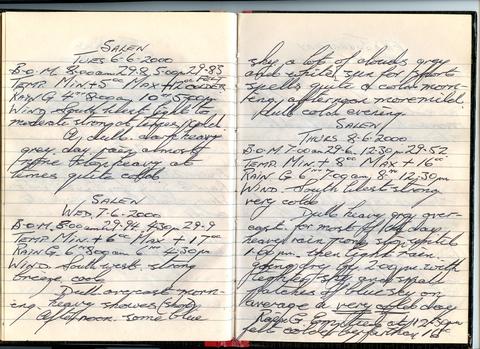 SALEN
TUES 6-6-2000
B.O.M. 8:00am 29-8 5:00pm 29-83
TEMP MIN + 5°° MAX +
RAIN G 4ᵐᵐ 8:00am 10 5:30pm
WIND South West light to
moderate strong at times cold
A dull dark heavy
grey day rain almost
more then heavy at
times quite cold
SALEN
WED, 7-6-2000
B.O.M. 8:00am 29-94 4:30pm 29-9
TEMP MIN + 6°° MAX + 17°°
RAIN G 6ᵐᵐ 8:30am 6ᵐᵐ 4:30pm
WIND. South west strong
breeze cool
Dull overcast morn-
ing. heavy showers
afternoon. some blue
sky a lot of clouds grey
and white, sun for short
spells quite a cold morn-
ing, afternoon more mild.
cold evening.
SALEN
THURS 8-6-2000
B.O.M 7:00am 29-6 12:30pm 29-52
TEMP. MIN. + 8°° MAX + 16°°
RAIN G 6ᵐᵐ 7:00am 8ᵐᵐ 12:30pm
WIND. South West strong
very cold
Dull heavy grey over-
cast. for most of the day.
heavy rain from until
1:00pm. then light rain.
going dry by 2:00pm with
lighter sky and small
patches of blue sky on
average a very cold day
RAIN G Emptied at 12:30pm
felt colder by far than 16°°